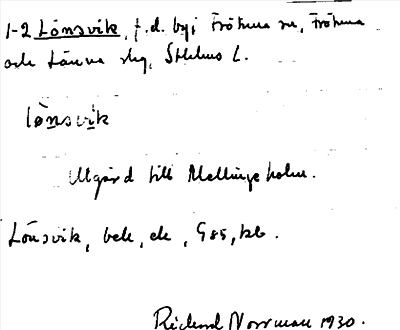 1-2 Lönsvik, f.d. by i Frötuna sn, Frötuna
och Länna skg, Sthlms L.
lònsvik
Utgård till Mellingeholm.
Lönsvik, beb, ek, G85, kb.
Rickard Norrman 1930.